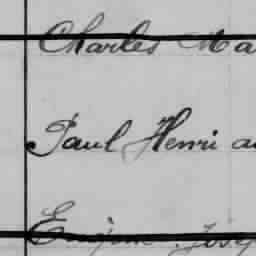 Charles Ma
Paul Henri au
Eugène Josep